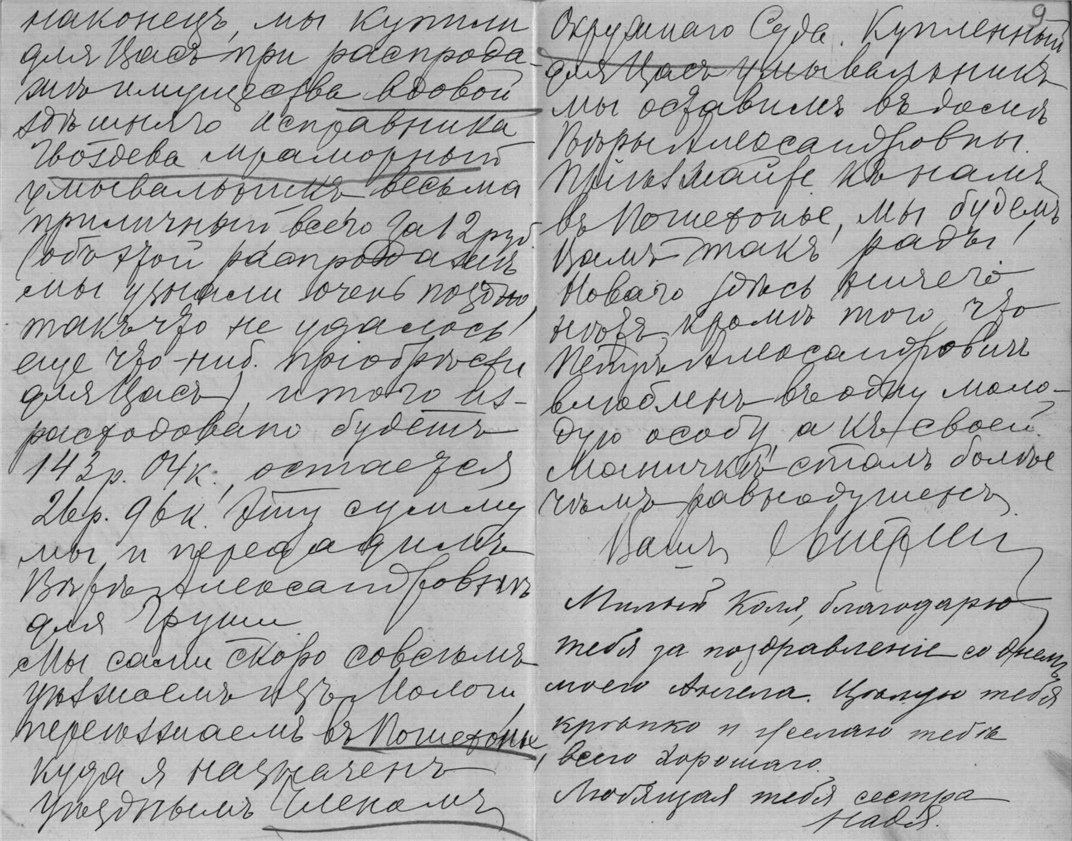 наконецъ, мы купили
для Васъ при распрода-
жѣ имущества вдовой
здѣшняго исправника
Гвоздева мраморный
умывальникъ весьма
приличный всего за 12 руб.
(объ этой распродажѣ
мы узнали очень поздно,
такъ что не удалось
еще что-ниб. пріобрѣсти
для Васъ), итого из-
расходовано будетъ
143р. 04к., остается
26р. 96к. Эту сумму
мы и передадимъ
Вѣрѣ Александровнѣ
для Груши.
Мы сами скоро совсѣмъ
уѣзжаемъ изъ Мологи,
переѣзжаемъ въ Пошехонье,
куда я назначенъ
уѣзднымъ Членомъ
9
Окружнаго Суда. Купленный
для Васъ умывальникъ
мы оставимъ въ домѣ
Вѣры Александровны.
Пріѣзжайте къ намъ
въ Пошехонье, мы будемъ
Вамъ такъ рады!
Новаго здѣсь ничего
нѣтъ кромѣ того что
Петръ Александровичъ
влюбленъ въ одну моло-
дую особу, а къ своей
Маничкѣ сталъ болѣе
чѣмъ равнодушенъ.
Вашъ
Милый Коля, благодарю
тебя за поздравленіе со днемъ
моего Ангела. Цѣлую тебя
крѣпко и желаю тебѣ
всего хорошаго.
Любящая тебя сестра
Надя.